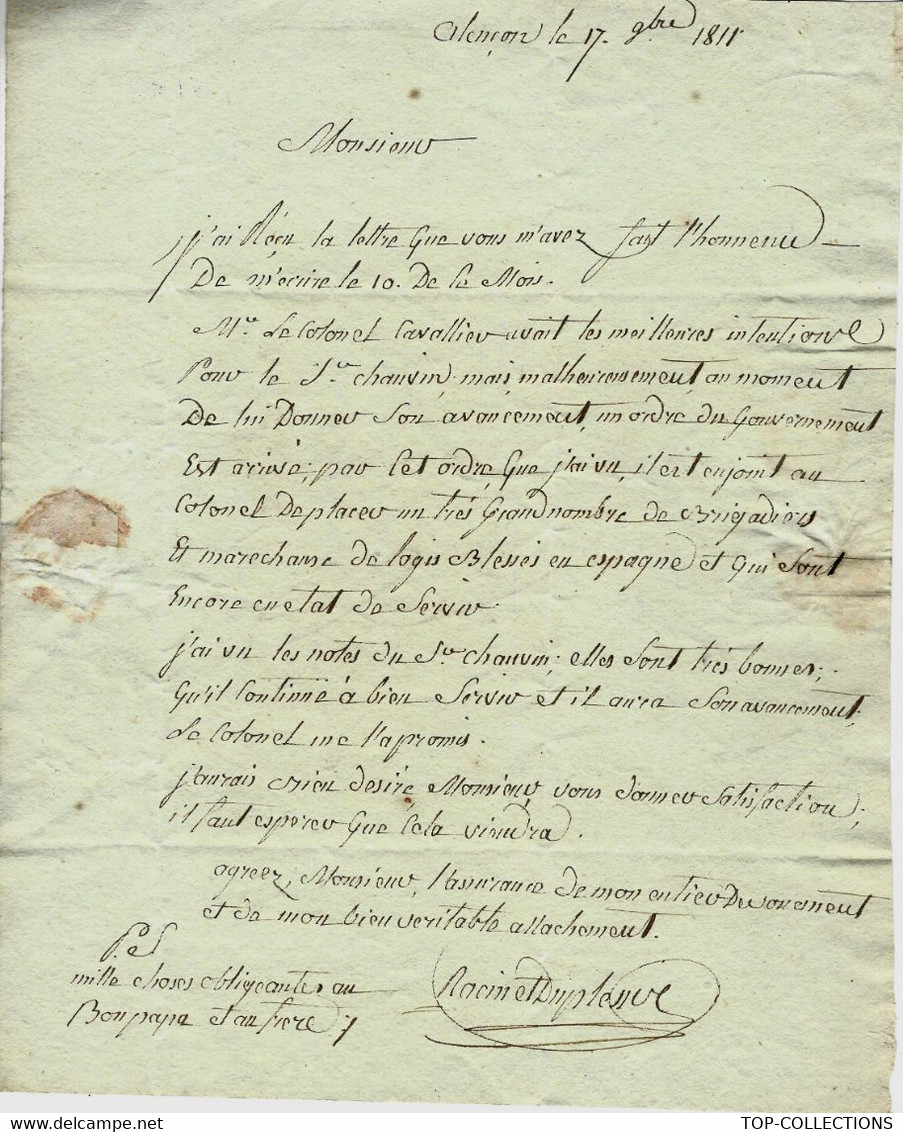 Alençon le 17. 9bre 1811
Monsieur
j'ai Réçu la lettre Que vous m'avez fait l'honneur
De m'ecrire le 10. De ce Mois.
Mr. Le Colonel Cavallier avait les meilleures intentions
Pour le Sr. chauvin; mais malheureusement au moment
De lui Donner Son avancement, un ordre du Gouvernement
Est arrivé; par Cet ordre, Que j'ai vu, il est enjoint au
Colonel De placer un très Grand nombre de Brigadiers
Et marechaux de logis Blessés en espagne et Qui Sont
Encore en etat de Servir.
j'ai vu les notes du Sr. chauvin; elles Sont très bonnes;
Qu'il Continue à bien Servir et il aura Son avancement;
Le Colonel me l'a promis.
j'aurais bien desiré Monsieur, vous donner Satisfaction;
il faut esperer Que Cela viendra.
agreez, Monsieur, l'assurance de mon entier Devouement
et de mon bien veritable attachement.
P.S
mille choses obligeantes au
Bon papa et au frere ;/.
Racinet Duplessix
TOP-COLLECTIONS